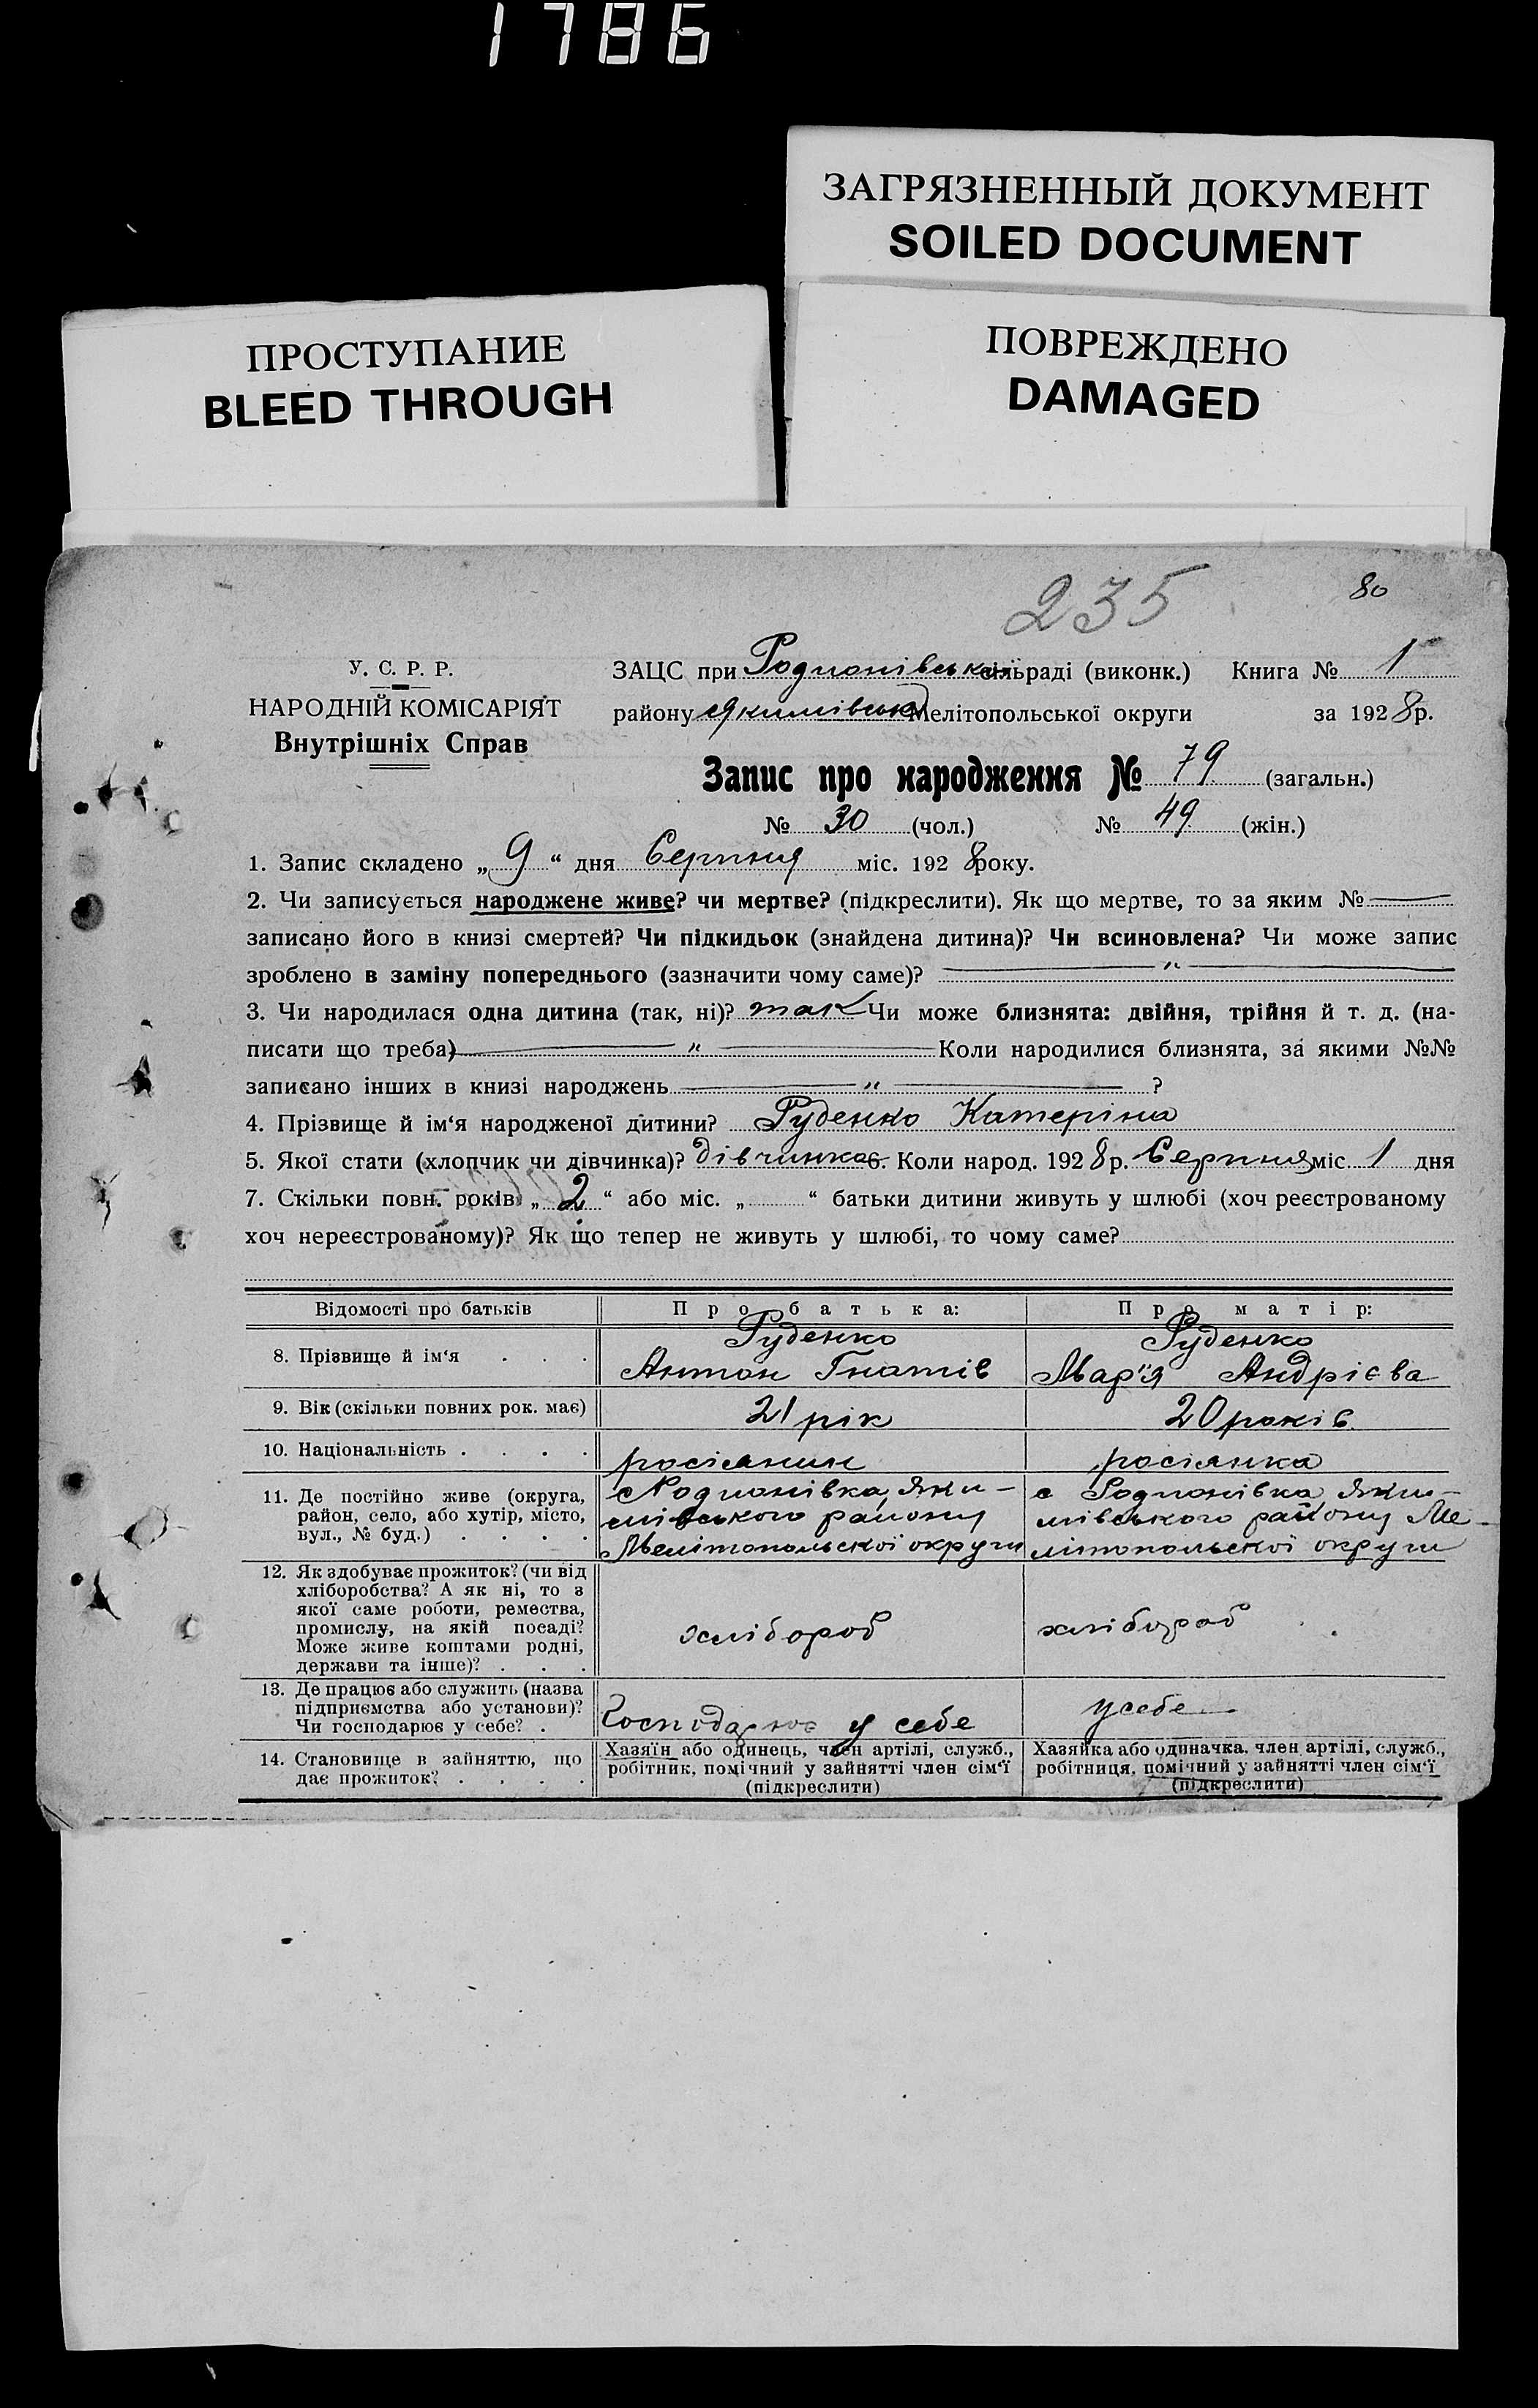 1786
ЗАГРЯЗНЕННЫЙ ДОКУМЕНТ
SOILED DOCUMENT
ПРОСТУПАНИЕ
BLEED THROUGH
ПОВРЕЖДЕНО
DAMAGED
235
80
У. С. Р. Р.
НАРОДНІЙ КОМІСАРІЯТ
Внутрішніх Справ
ЗАЦС при Родионівськ сільраді (виконк.) Книга № 1
району Якимівськ Мелітопольської округи за 1928р.
Запис про народження № 79 (загальн.)
№ 30 (чол.) № 49 (жін.)
1. Запис складено „ 9 “ дня Серпня міс. 1928 року.
2. Чи записується народжене живе? чи мертве? (підкреслити). Як що мертве, то за яким № —
записано його в книзі смертей? Чи підкидьок (знайдена дитина)? Чи всиновлена? Чи може запис
зроблено в заміну попереднього (зазначити чому саме)? — " —
3. Чи народилася одна дитина (так, ні)? так Чи може близнята: двійня, трійня й т. д. (на-
писати що треба) — " — Коли народилися близнята, за якими №№
записано інших в книзі народжень — " — ?
4. Прізвище й ім‘я народженої дитини? Руденко Катеріна
5. Якої стати (хлопчик чи дівчинка)? дівчинка 6. Коли народ. 1928 р. Серпня міс. 1 дня
7. Скільки повн. років „ 2 “ або міс. „ “ батьки дитини живуть у шлюбі (хоч реєстрованому
хоч нереєстрованому)? Як що тепер не живуть у шлюбі, то чому саме?
Відомості про батьків Про батька: Про матір:
8. Прізвище й ім‘я . . . Руденко Антон Гнатів Руденко Мар'я Андрієва
9. Вік (скільки повних рок. має) 21 рік 20 років
10. Національність . . . . росіянин росіянка
11. Де постійно живе (округа,
район, село, або хутір, місто,
вул., № буд.) . . . .
с Родионівка, Яки-
мівського району
Мелітопольскої округи
с Родионівка Яки-
мівського району Ме-
літопольскої округи
12. Як здобуває прожиток? (чи від
хліборобства? А як ні, то з
якої саме роботи, ремества,
промислу, на якій посаді?
Може живе коштами родні,
держави та інше)? . . .
хлібороб
хлібороб
13. Де працює або служить (назва
підприємства або установи)?
Чи господарює у себе? .
Господарює у себе
у себе
14. Становище в зайняттю, що
дає прожиток? . . . .
Хазяїн або одинець, член артілі, служб.,
робітник, помічний у зайнятті член сім‘ї
(підкреслити)
Хазяйка або одиначка, член артілі, служб.,
робітниця, помічний у зайнятті член сім‘ї
(підкреслити)